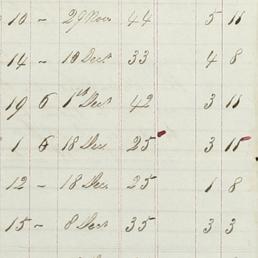 10 – 29 Nov 44 5 11
14 – 10 Dect 33 4 8
19 6 1st Dect 42 3 11
1 6 18 Dec 25 3 11
12 – 18 Dec 25 1 8
15 – 8 Dect 35 3 3